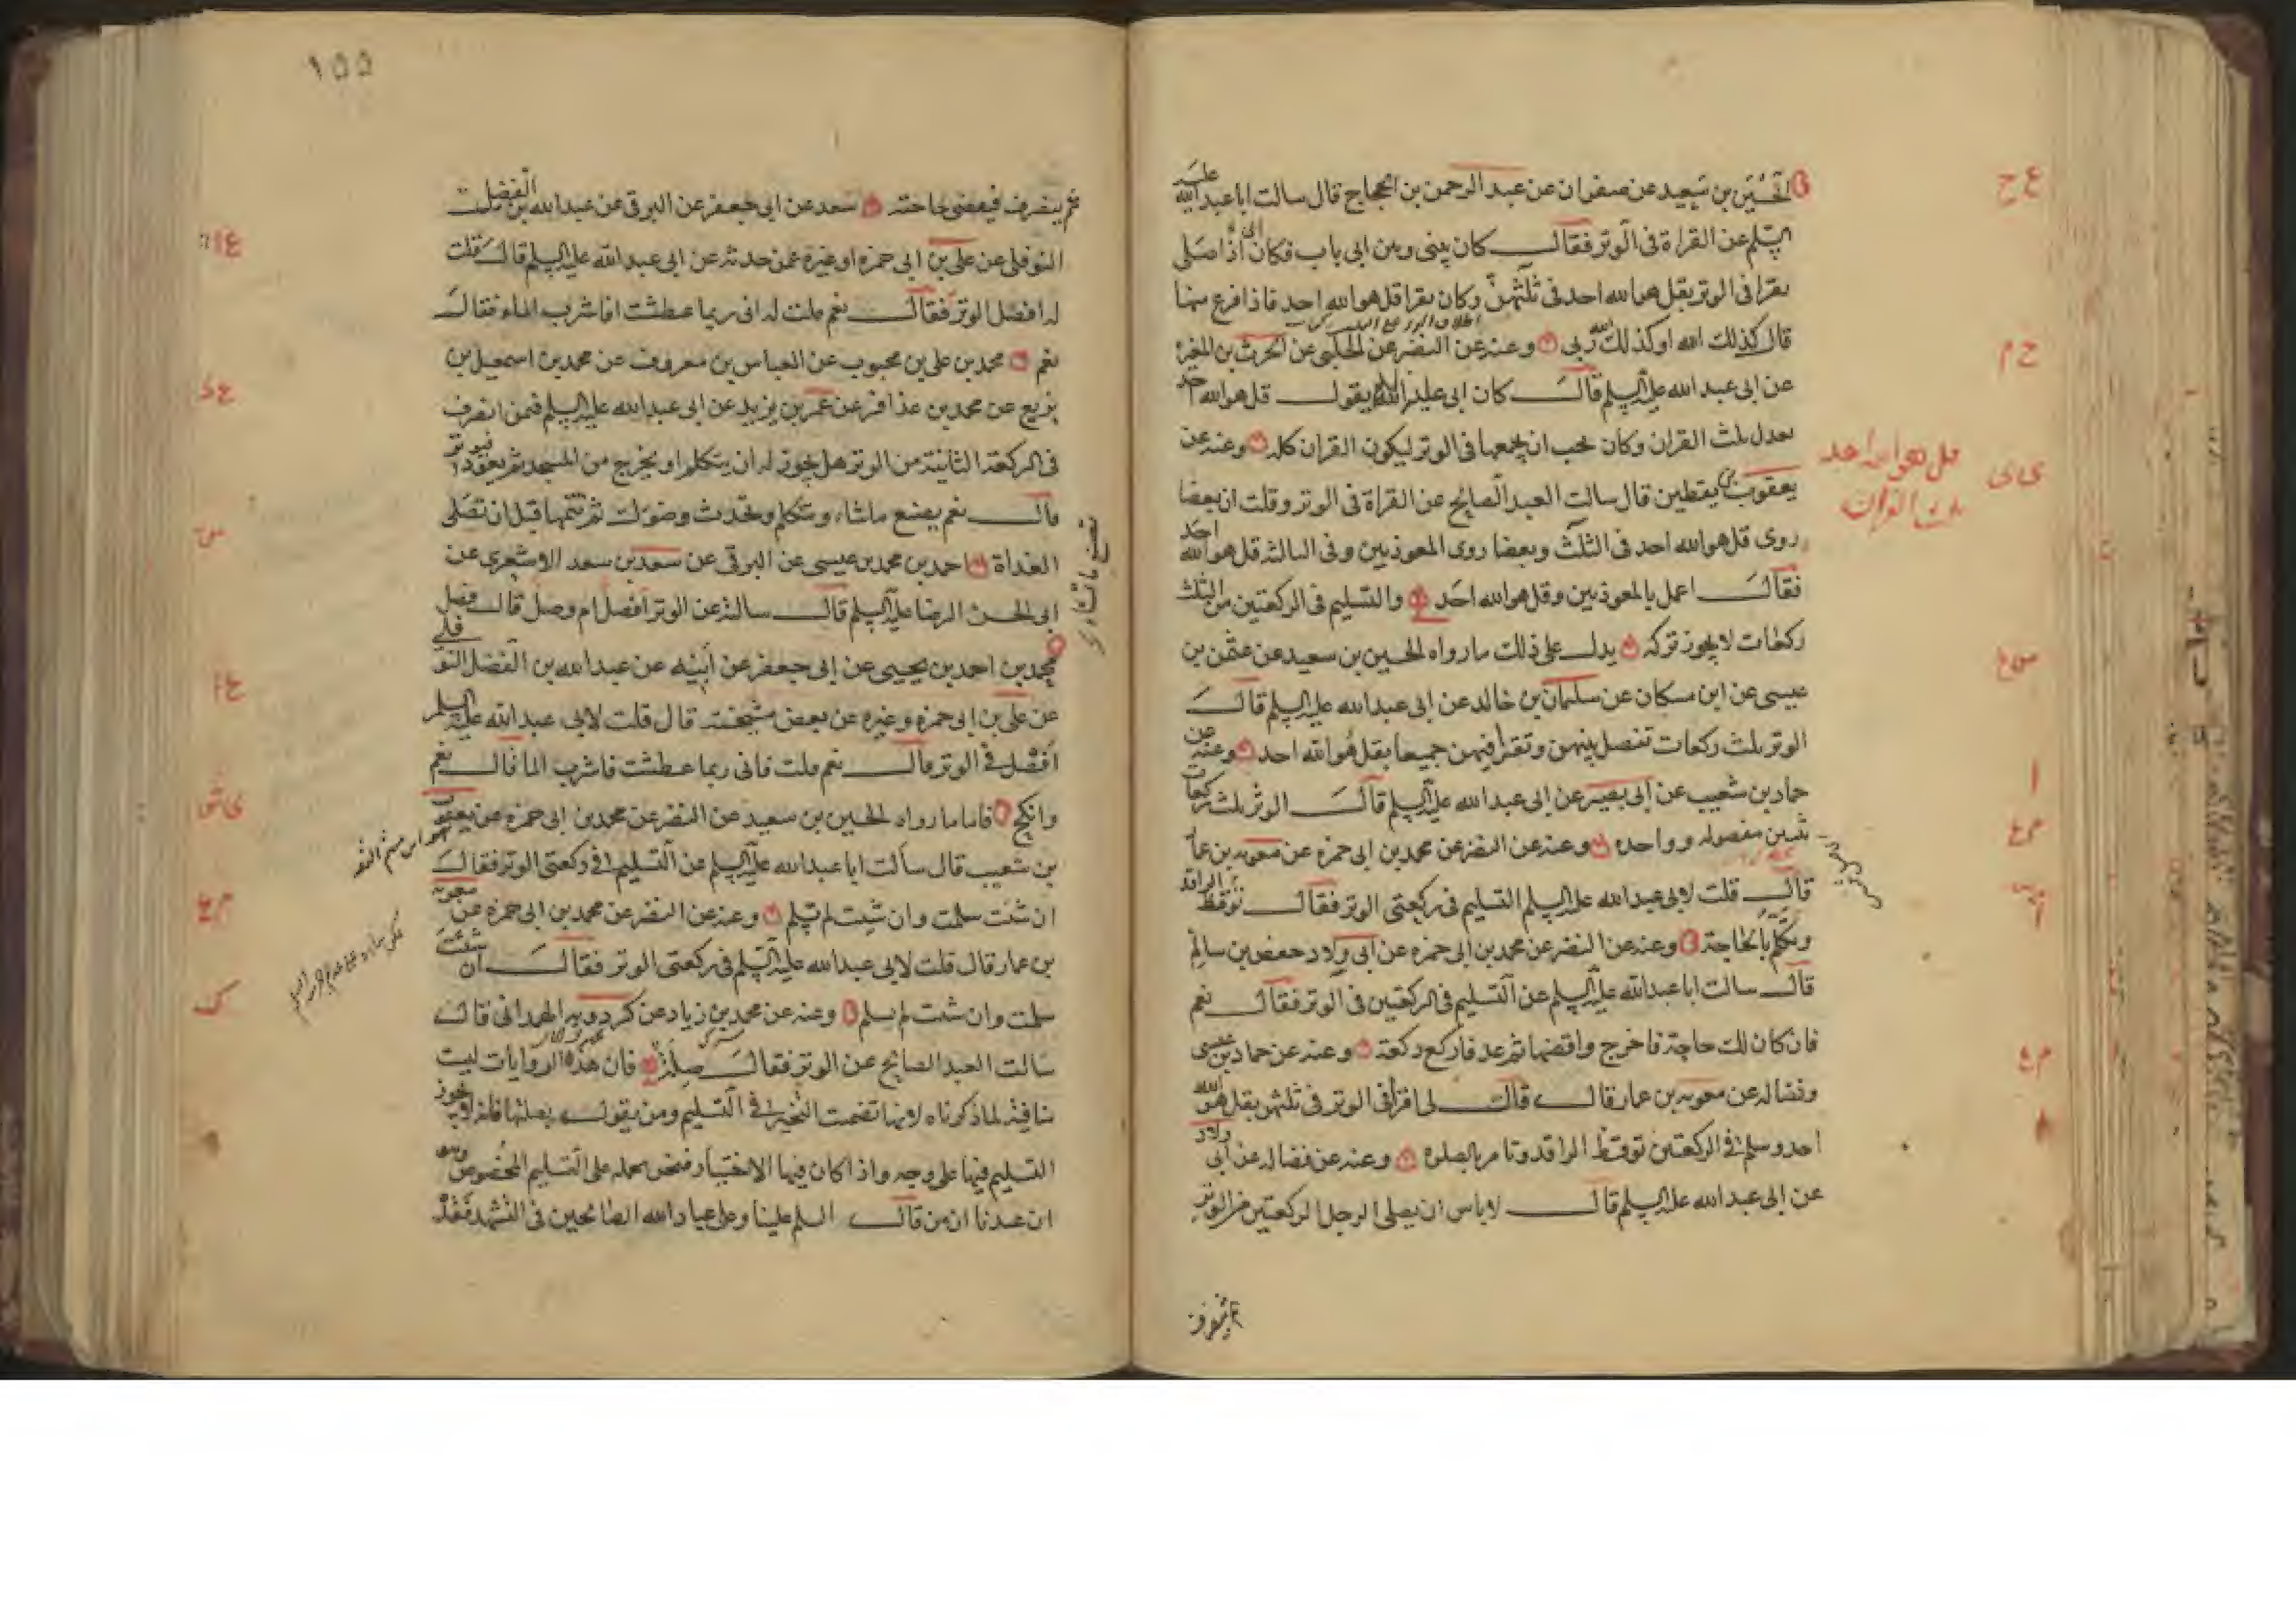 الحسين بن سعيد عن صفوان عن عبد الرحمن بن الحجاج قال سالت ابا عبد الله عليه
السلم عن القراة فى الوتر فقال كان بينى وبين ابى باب فكان ابى اذا صلى
يقرا فى الوتر بقل هو الله احد فى ثلثهن وكان يقرا قل هو الله احد فاذا فرغ منها
قال كذلك الله او كذلك الله ربى وعنه عن النضر عن الحلبى عن الحرث بن المغيرة
عن ابى عبد الله عليه السلم قال كان ابى عليه السلم يقول قل هو الله احد
يعدل ثلث القران وكان يحب ان يجمعها فى الوتر ليكون القران كله وعنه عن
قل هو الله احد
ثلث القران
يعقوب بن يقطين قال سالت العبد الصالح عن القراة فى الوتر وقلت ان بعضا
روى قل هو الله احد فى الثلث وبعضا روى المعوذتين وفى الثالثة قل هو الله احد
فقال اعمل بالمعوذتين وقل هو الله احد والتسليم فى الركعتين من الثلث
ركعات لا يجوز تركه يدل على ذلك ما رواه الحسين بن سعيد عن عثمن بن
عيسى عن ابن مسكان عن سليمان بن خالد عن ابى عبد الله عليه السلم قال
الوتر ثلث ركعات تفصل بينهن وتقرا فيهن جميعا بقل هو الله احد وعنه عن
حماد بن شعيب عن ابى بصير عن ابى عبد الله عليه السلم قال الوتر ثلث ركعات
ثنتين مفصوله وواحده وعنه عن النضر عن محمد بن ابى حمزه عن معويه بن عمار
قال قلت لابى عبد الله عليه السلم التسليم فى ركعتى الوتر فقال توقظ الراقد
وتكلم بالحاجة وعنه عن النضر عن محمد بن ابى حمزه عن ابى ولاد حفص بن سالم
قال سالت ابا عبد الله عليه السلم عن التسليم فى الركعتين فى الوتر فقال نعم
فان كان لك حاجة فاخرج واقضها ثم عد فاركع ركعة وعنه عن حماد بن عيسى
وفضاله عن معويه بن عمار قال قال لى اقرا فى الوتر فى ثلثهن بقل هو الله
احد وسلم فى الركعتين توقظ الراقد وتامر بالصلوة وعنه عن فضاله عن ابى ولاد
عن ابى عبد الله عليه السلم قال لا باس ان يصلى الرجل الركعتين من الوتر
ثم ينصرف
١٥٥
ثم ينصرف فيقضى حاجته سعد عن ابى جعفر عن البرقى عن عبد الله بن الفضل
النوفلى عن على بن ابى حمزه او غيره عمن حدثه عن ابى عبد الله عليه السلم قال قلت
له افصل الوتر فقال نعم قلت له انى ربما عطشت افاشرب الماء فقال
نعم محمد بن على بن محبوب عن العباس بن معروف عن محمد بن اسمعيل بن
بزيع عن محمد بن عذافر عن عمر بن يزيد عن ابى عبد الله عليه السلم فيمن انصرف
فى الركعة الثانية من الوتر هل يجوز له ان يتكلم او يخرج من المسجد ثم يعود فيوتر
قال نعم يصنع ماشاء ويتكلم ويحدث وضوءك ثم تتمها قبل ان تصلى
الغداة احمد بن محمد بن عيسى عن البرقى عن سعد بن سعد الاشعرى عن
ابى الحسن الرضا عليه السلم قال سالته عن الوتر افصل ام وصل قال فصل
محمد بن احمد بن يحيى عن ابى جعفر عن ابيه عن عبد الله بن الفضل النوفلى
عن على بن ابى حمزه وغيره عن بعض مشيخته قال قلت لابى عبد الله عليه السلم
افصل فى الوتر قال نعم قلت فانى ربما عطشت فاشرب الما قال نعم
وانكح فاما ما رواه الحسين بن سعيد عن النضر عن محمد بن ابى حمزه عن يعقوب
بن شعيب قال سالت ابا عبد الله عليه السلم عن التسليم فى ركعتى الوتر فقال
ان شئت سلمت وان شئت لم تسلم وعنه عن النضر عن محمد بن ابى حمزه عن معويه
بن عمار قال قلت لابى عبد الله عليه السلم فى ركعتى الوتر فقال ان شئت
سلمت وان شئت لم تسلم وعنه عن محمد بن زياد عن كردويه الهمدانى قال
سالت العبد الصالح عن الوتر فقال صله فان هذه الروايات ليست
منافية لما ذكرناه لانها تضمنت التخيير فى التسليم ومن يقول بصلتها فلا يجوز
التسليم فيها على وجه واذا كان فيها الاختيار فنحن نحمله على التسليم المخصوص وهو
ان عندنا ان من قال السلم علينا وعلى عباد الله الصالحين فى التشهد فقد